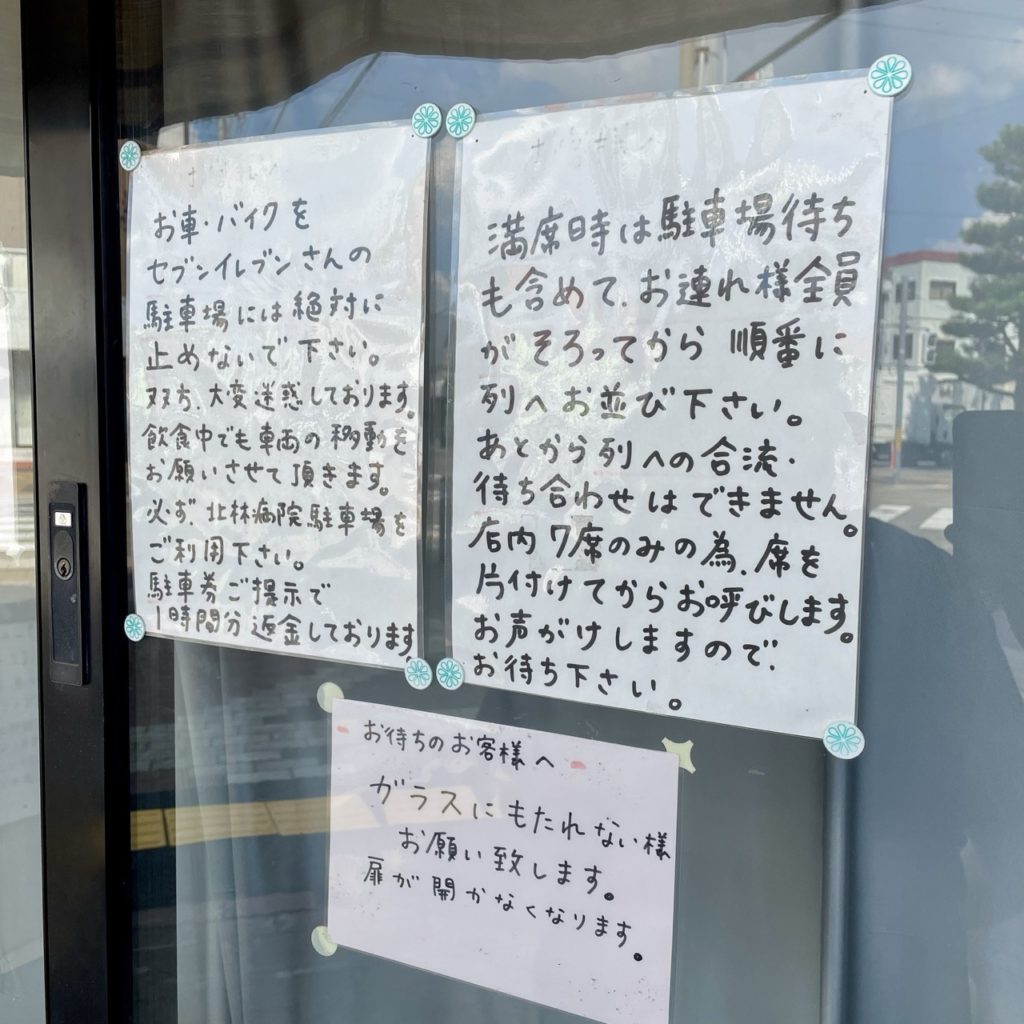 お車・バイクを
セブンイレブンさんの
駐車場には絶対に
止めないで下さい。
双方、大変迷惑しております。
飲食中でも車両の移動を
お願いさせて頂きます。
必ず、北林病院駐車場を
ご利用下さい。
駐車券ご提示で
1時間分返金しております
満席時は駐車場待ち
も含めて、お連れ様全員
がそろってから順番に
列へお並び下さい。
あとから列への合流・
待ち合わせはできません。
店内7席のみの為、席を
片付けてからお呼びします。
お声がけしますので、
お待ち下さい。
お待ちのお客様へ
ガラスにもたれない様
お願い致します。
扉が開かなくなります。